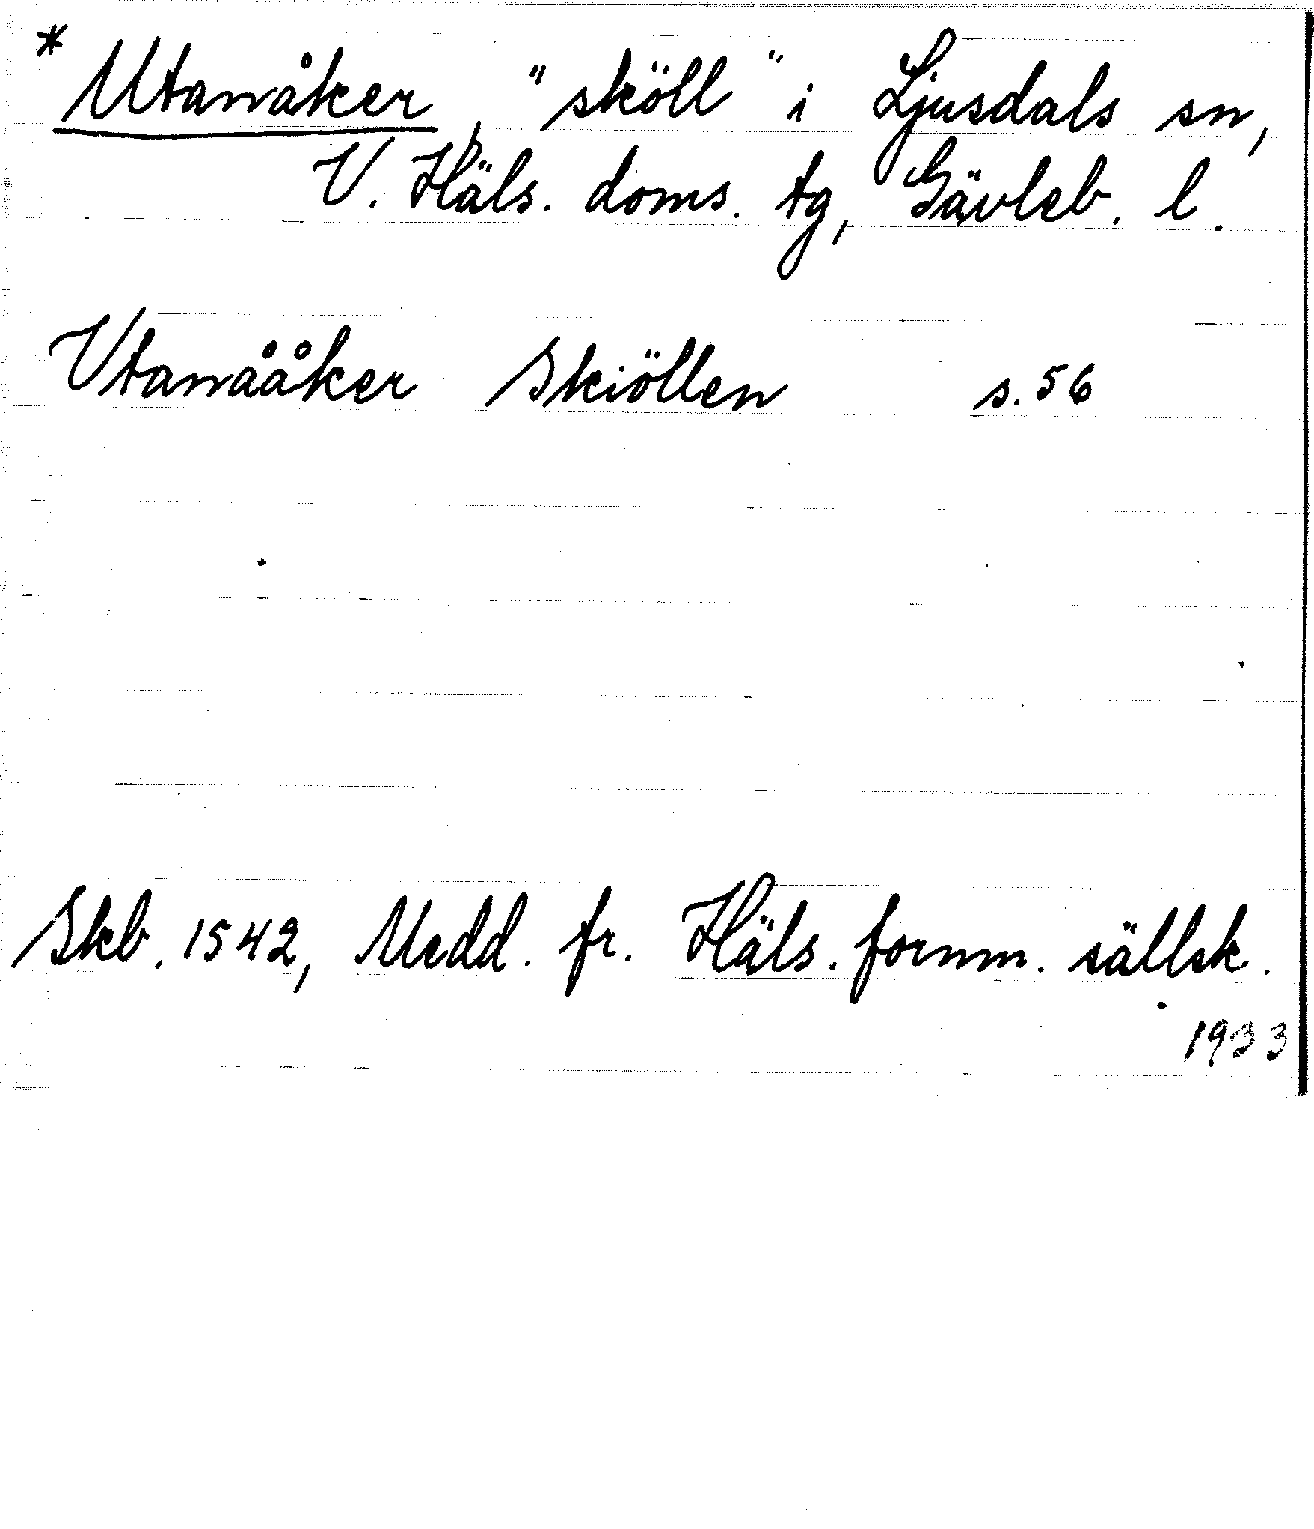 * Utanåker, "sköll" i Ljusdals sn,
V. Häls. doms. tg, Gävleb. l.
Vtanååker Skiöllen s. 56
Skb. 1542, Medd. fr. Häls. fornm. sällsk.
1933